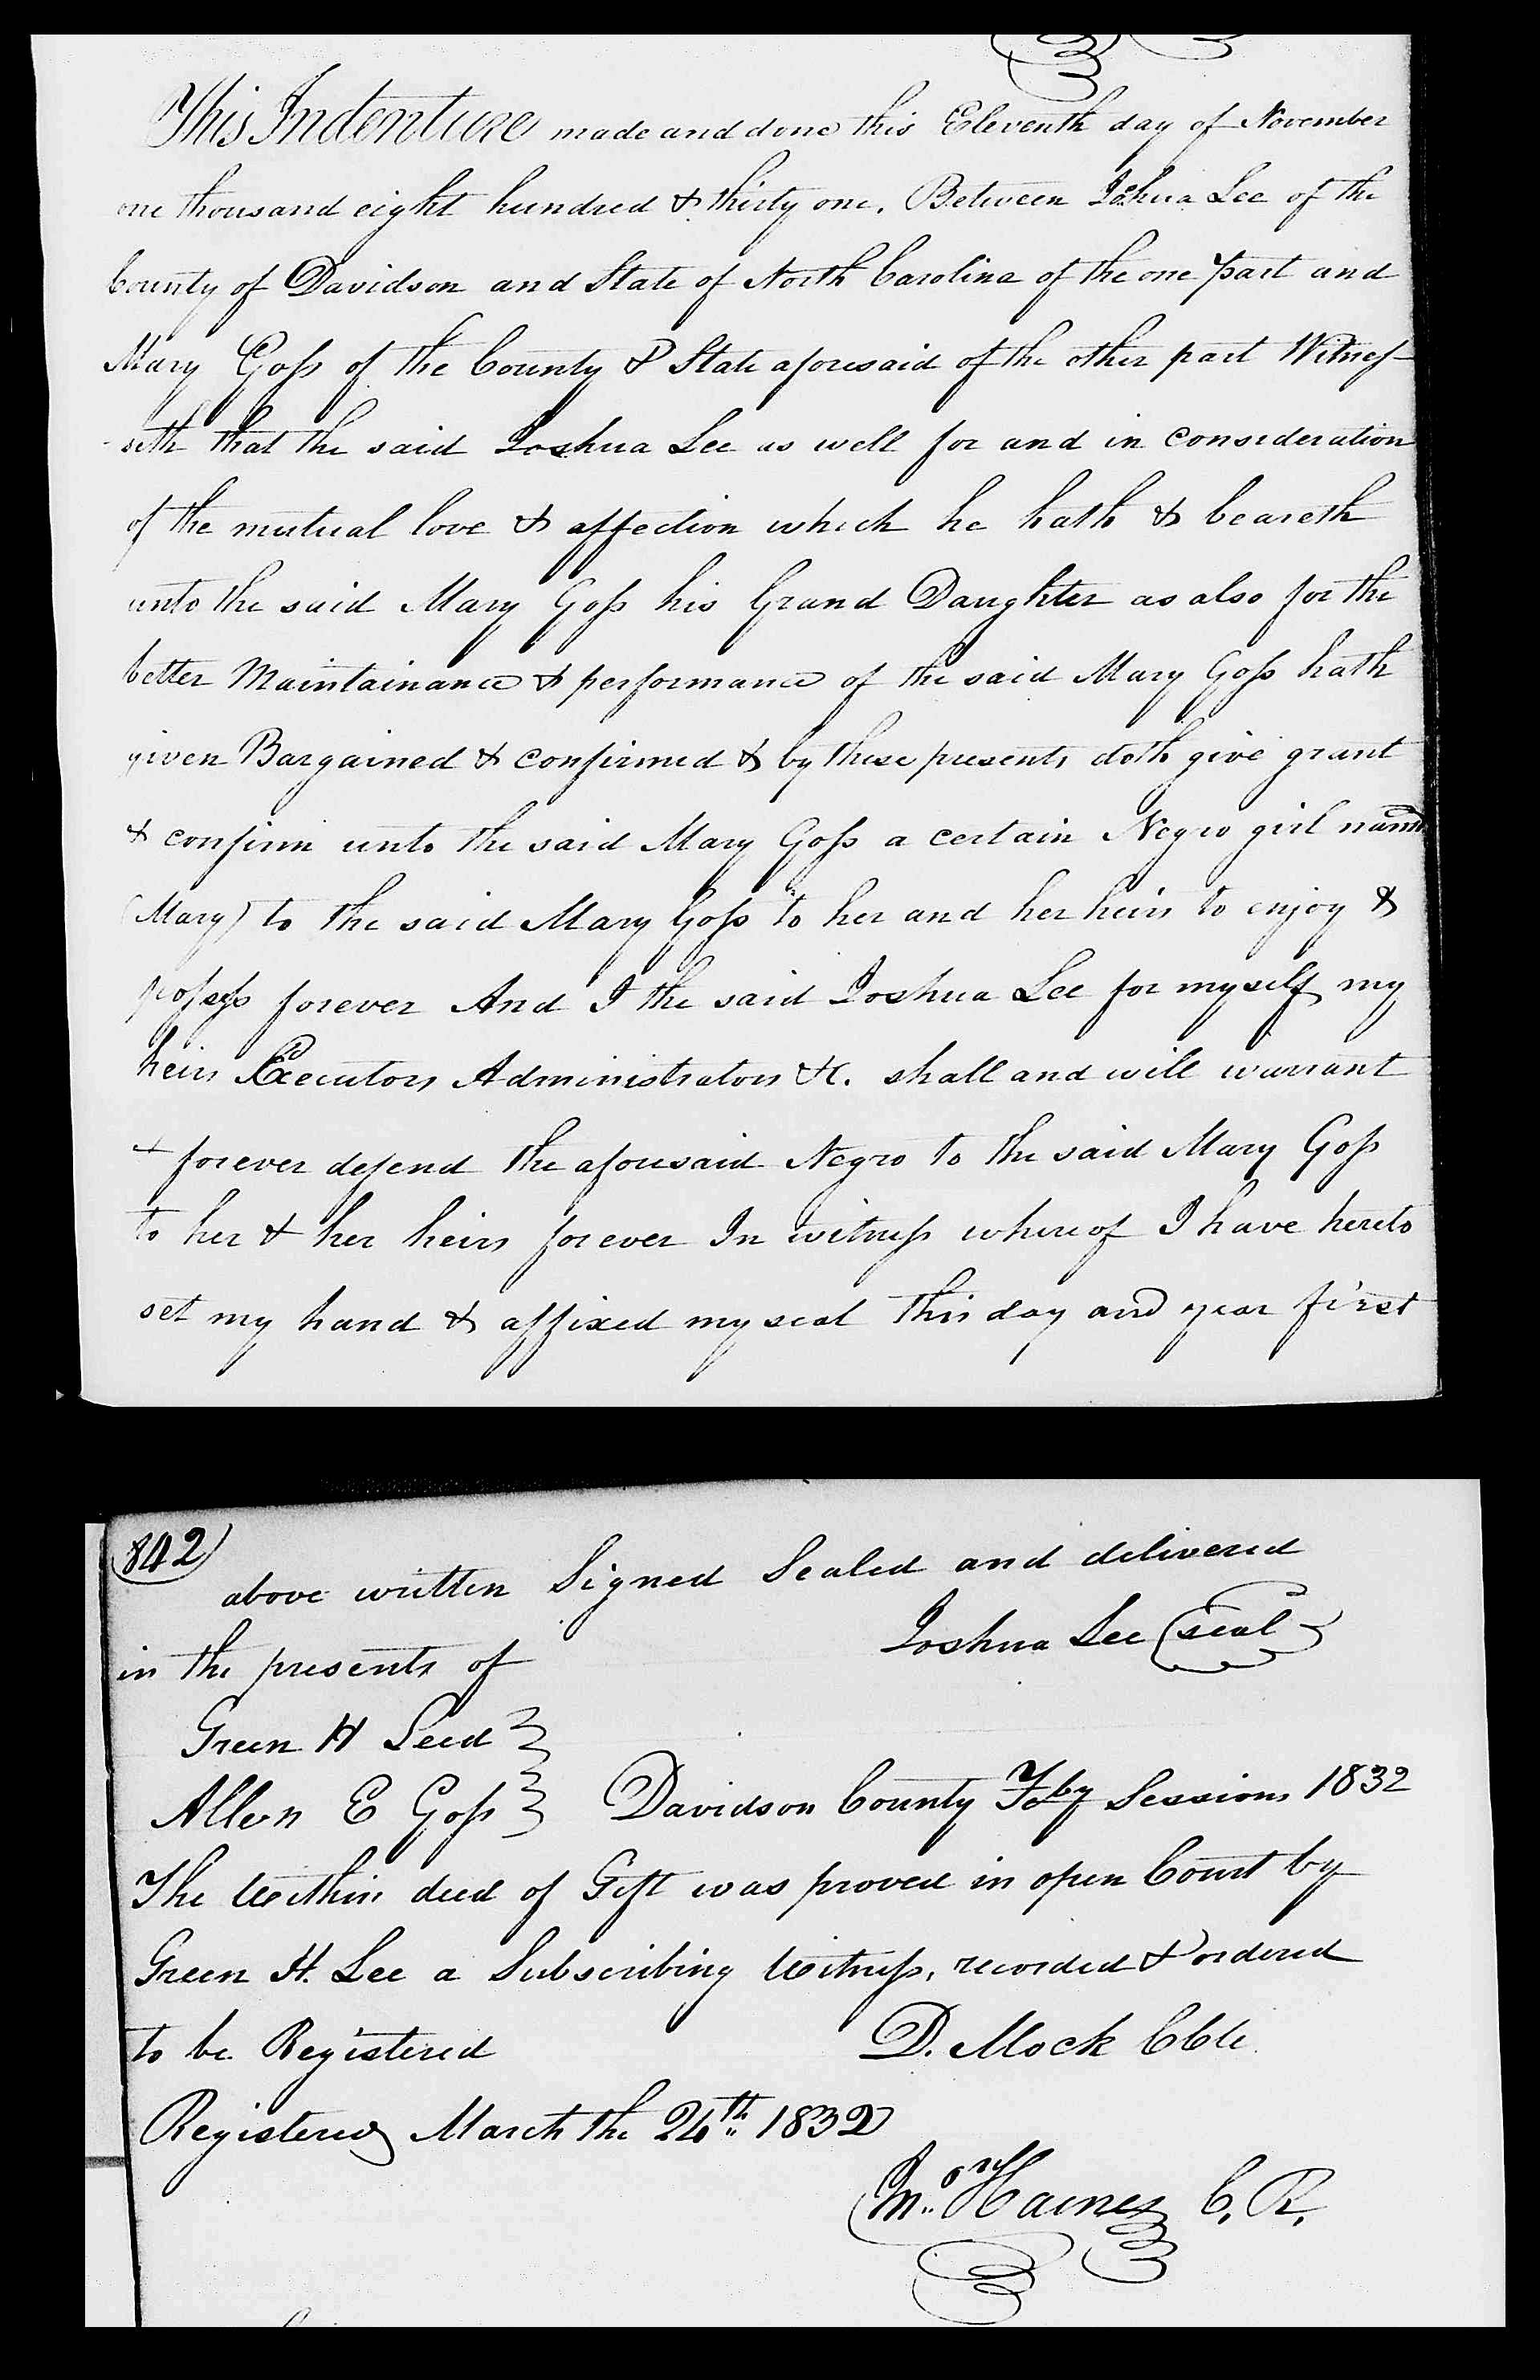 This Indenture made and done this Eleventh day of November
one thousand eight hundred & thirty one. Between Joshua Lee of the
County of Davidson and State of North Carolina of the one part and
Mary Goss of the County & State aforesaid of the other part Witness-
-seth that the said Joshua Lee as well for and in consideration
of the mutual love & affection which he hath & beareth
unto the said Mary Goss his Grand Daughter as also for the
better Maintainance & performance of the said Mary Goss hath
given Bargained & confirmed & by these presents doth give grant
& confirm unto the said Mary Goss a certain Negro girl named
(Mary) to the said Mary Goss to her and her heirs to enjoy &
possess forever And I the said Joshua Lee for myself my
heirs Executors Administrators &c. shall and will warrant
& forever defend the aforesaid Negro to the said Mary Goss
to her & her heirs forever In witness whereof I have hereto
set my hand & affixed my seal this day and year first
842
above written Signed Sealed and delivered
in the presents of Joshua Lee (seal)
Green H Leed
Allen E Goss Davidson County Feby Sessions 1832
The Within deed of Gift was proved in open Court by
Green H. Lee a Subscribing Witness, recorded & ordered
to be Registered D. Mock CClk.
Registered March the 24th 1832
Jno. Haines C. R.